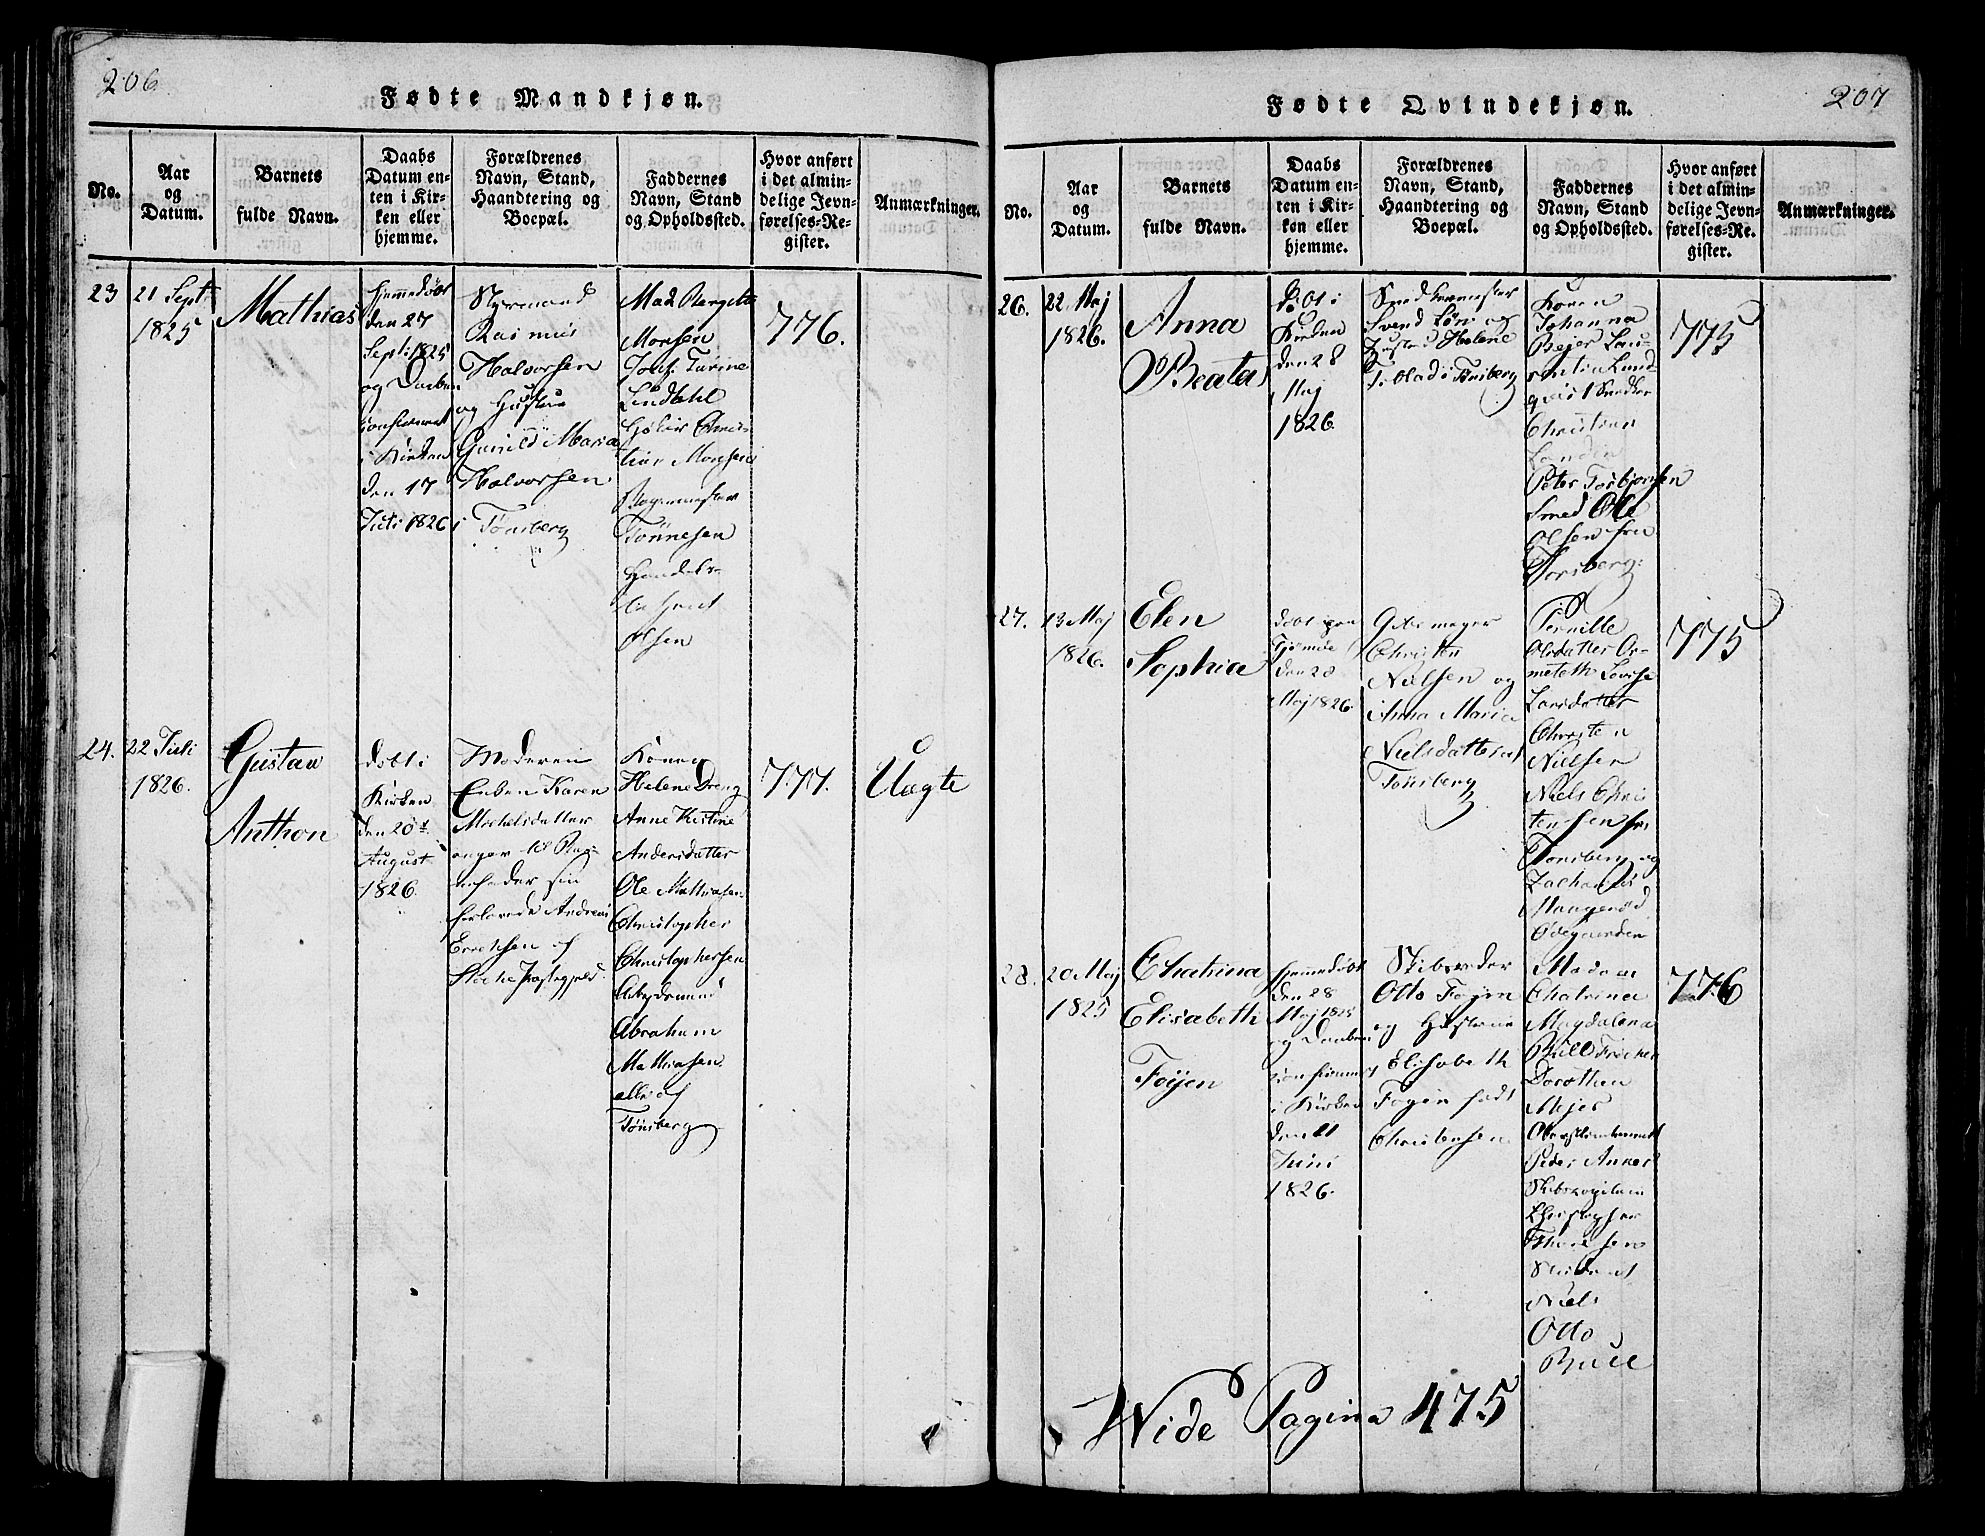 206
Fødte Mandkjøn.
No.
Aar
og
Datum.
Barnets
fulde Navn.
Daabs
Datum en-
ten i Kir-
ken eller
hjemme.
Forældrenes
Navn, Stand,
Haandtering og
Boepæl.
Faddernes
Navn, Stand
og Opholdssted.
Hvor anført
i det almin-
delige Jevn-
førelses-Re-
gister.
Anmærkninger.
23
21 Sept
1825
Mathias
Hjemmedøbt
den 27
Sept: 1825
og Daaben
confirmeret
i Kirken
den 17
Juli 1826
Styrmand
Rasmus
Halvorsen
og Hustrue
Gunild Maria
Halvorsen
i Tönsberg
Mad Bergette
Monsen
Jomf. Turine
Lindahl
Chris-
tian Monsen
Tönnesen
Handels-
Olsen
776.
24.
22 Juli
1826.
Gustav
Anthon
døbt i
Kirken
den 20de
August
1826
Moderen
Enken Karen
Michelsdatter
angav til Barne-
fader sin
forlovede Andreas
Erichsen af
Stokke Præstegjeld
Konen
Helene Dreng
Anne Kistine
Andersdatter
Ole Mathiasen
Christopher
Christophersen
Arbejdsmand
Abraham
Mathiasen
alle af
Tönsberg
777.
Uægte
207
Fødte Qvindekjøn.
No.
Aar
og
Datum.
Barnets
fulde Navn.
Daabs
Datum en-
ten i Kir-
ken eller
hjemme.
Forældrenes
Navn, Stand,
Haandtering og
Boepæl.
Faddernes
Navn, Stand
og Opholdssted.
Hvor anført
i det almin-
delige Jevn-
førelses-Re-
gister.
Anmærkninger.
26.
22 Maj
1826.
Anna
Beata
Døbt i
Kirken
den 28
Maj
1826
Snedkermester
Svend og
Hustrue Helene
i Tönsberg
Konen
Johanna
Bejer Lau-
rentia Lund-
qvist Snedker
Christian
Peter Torbjönsen
Smed Ole
Olsen fra
Tönsberg:
775
27.
13 Maj
1826.
Elen
Sophia
døbt paa
Tjömöe
den 28
Maj 1826.
Christen
Nielsen og
Anna Maria
Nielsdatter af
Tönsberg
Pernille
Olsdatter
Lovise
Larsdatter
Christen
Nielsen
Niels Chris
tensen fra
Tonsberg og
Zacharias
Haugerød
Ödegaarden
775
28.
20 Maj
1825
Chatrina
Elisabeth
Föyen
Hjemmedøbt
den 28
Maj 1825
og Daaben
confirmeret
i Kirken
den 11
Juni
1826.
Skibsreder
Otto Föyen
og Hustrue
Elisabeth
Föyen född
Christensen
Madam
Chatrina
Magdalena
Bull Fröken
Dorothea
Mejer
Peder Anker
Skibscapitain
Christopher
Student
Niels
Otto
Bull
776
Wide Pagina 475